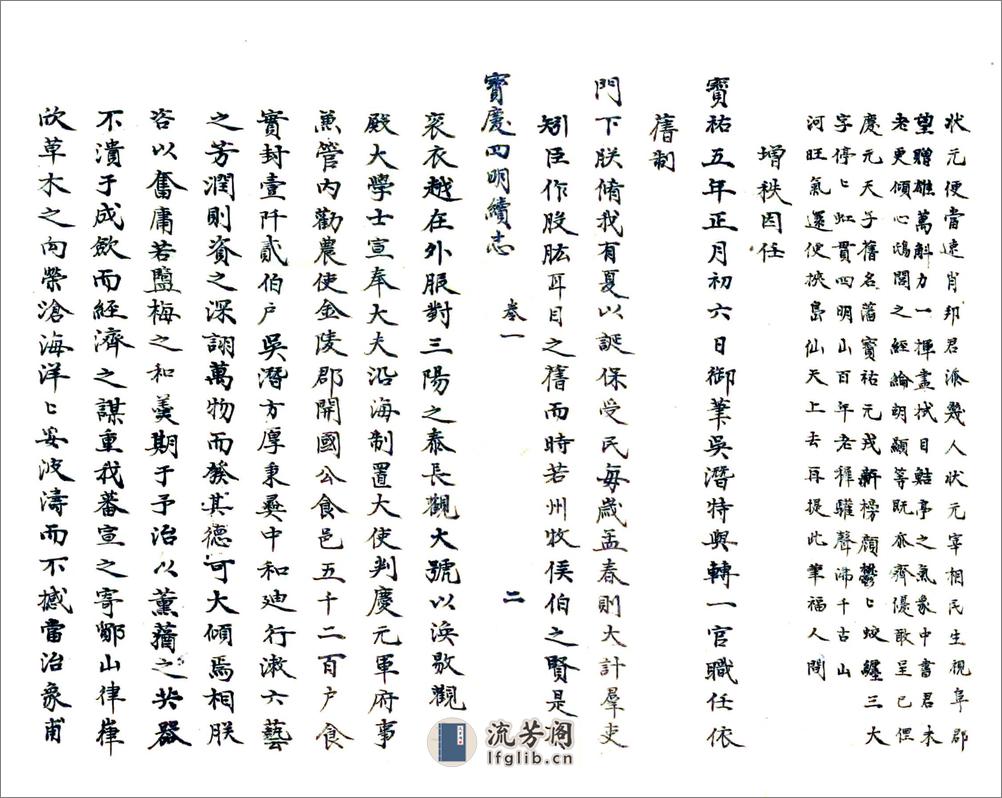 状元便當遠肖邦君派幾人状元宰相民生視阜郡
望贈雄萬斛力一揮盡拭目鮚亭之氣象中書君未
老更傾心鴻閣之經綸朗顯等既忝齊優敢呈已俚
慶元天子舊名藩寳祐元戎新榜顔鬱〻蛟纏三大
字停〻虹貫四明山百年老稚驩聲沸千古山
河旺氣還便挾島仙天上去再提此筆福人間
增秩因任
寳祐五年正月初六日御筆吳潛特與轉一官職任依
舊制
門下朕脩我有夏以誕保受民每歲孟春則大計羣吏
矧臣作股肱耳目之舊而時若州牧侯伯之賢是
寳慶四明續志 卷一 二
衮衣越在外服對三陽之泰長觀大號以渙敭觀
殿大學士宣奉大夫沿海制置大使判慶元軍府事
兼管内勸農使金陵郡開國公食邑五千二百户食
實封壹阡貳伯户吳潛方厚秉彝中和廸行漱六藝
之芳潤則資之深詡萬物而發其德可大傾焉相朕
咨以奮庸若鹽梅之和羮期于予治以薰蕕之共器
不潰于成歛而經濟之謀重我蕃宣之寄鄮山律嵂
欣草木之向榮滄海洋〻妥波濤而不撼當治象甫
流芳阁
lfglib.cn